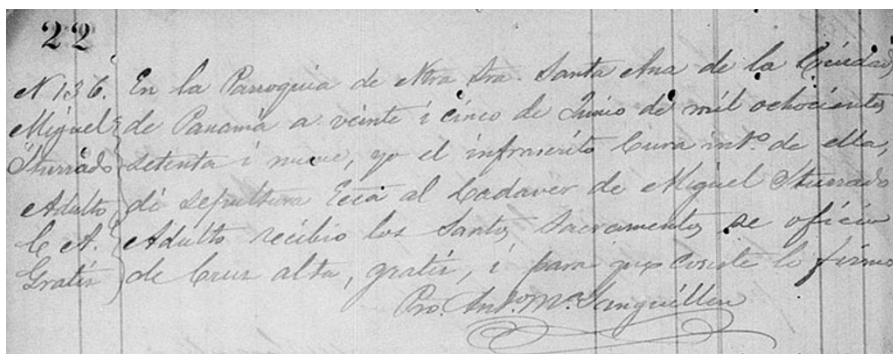 22
N 136. En la Parroquia de Ntra Sra. Santa Ana de la Ciudad
Miguel de Panamá a veinte i cinco de Junio de mil ochocientos
Iturrado setenta i nueve, yo el infrascrito Cura intº. de ella,
Adulto di sepultura Ecca al Cadaver de Miguel Iturrado
C. A. Adulto recibio los Santos Sacramentos, se oficio
Gratis de Cruz alta, gratis, i para que coste lo firmo
Pro. Antº. Mª. Sanguillen